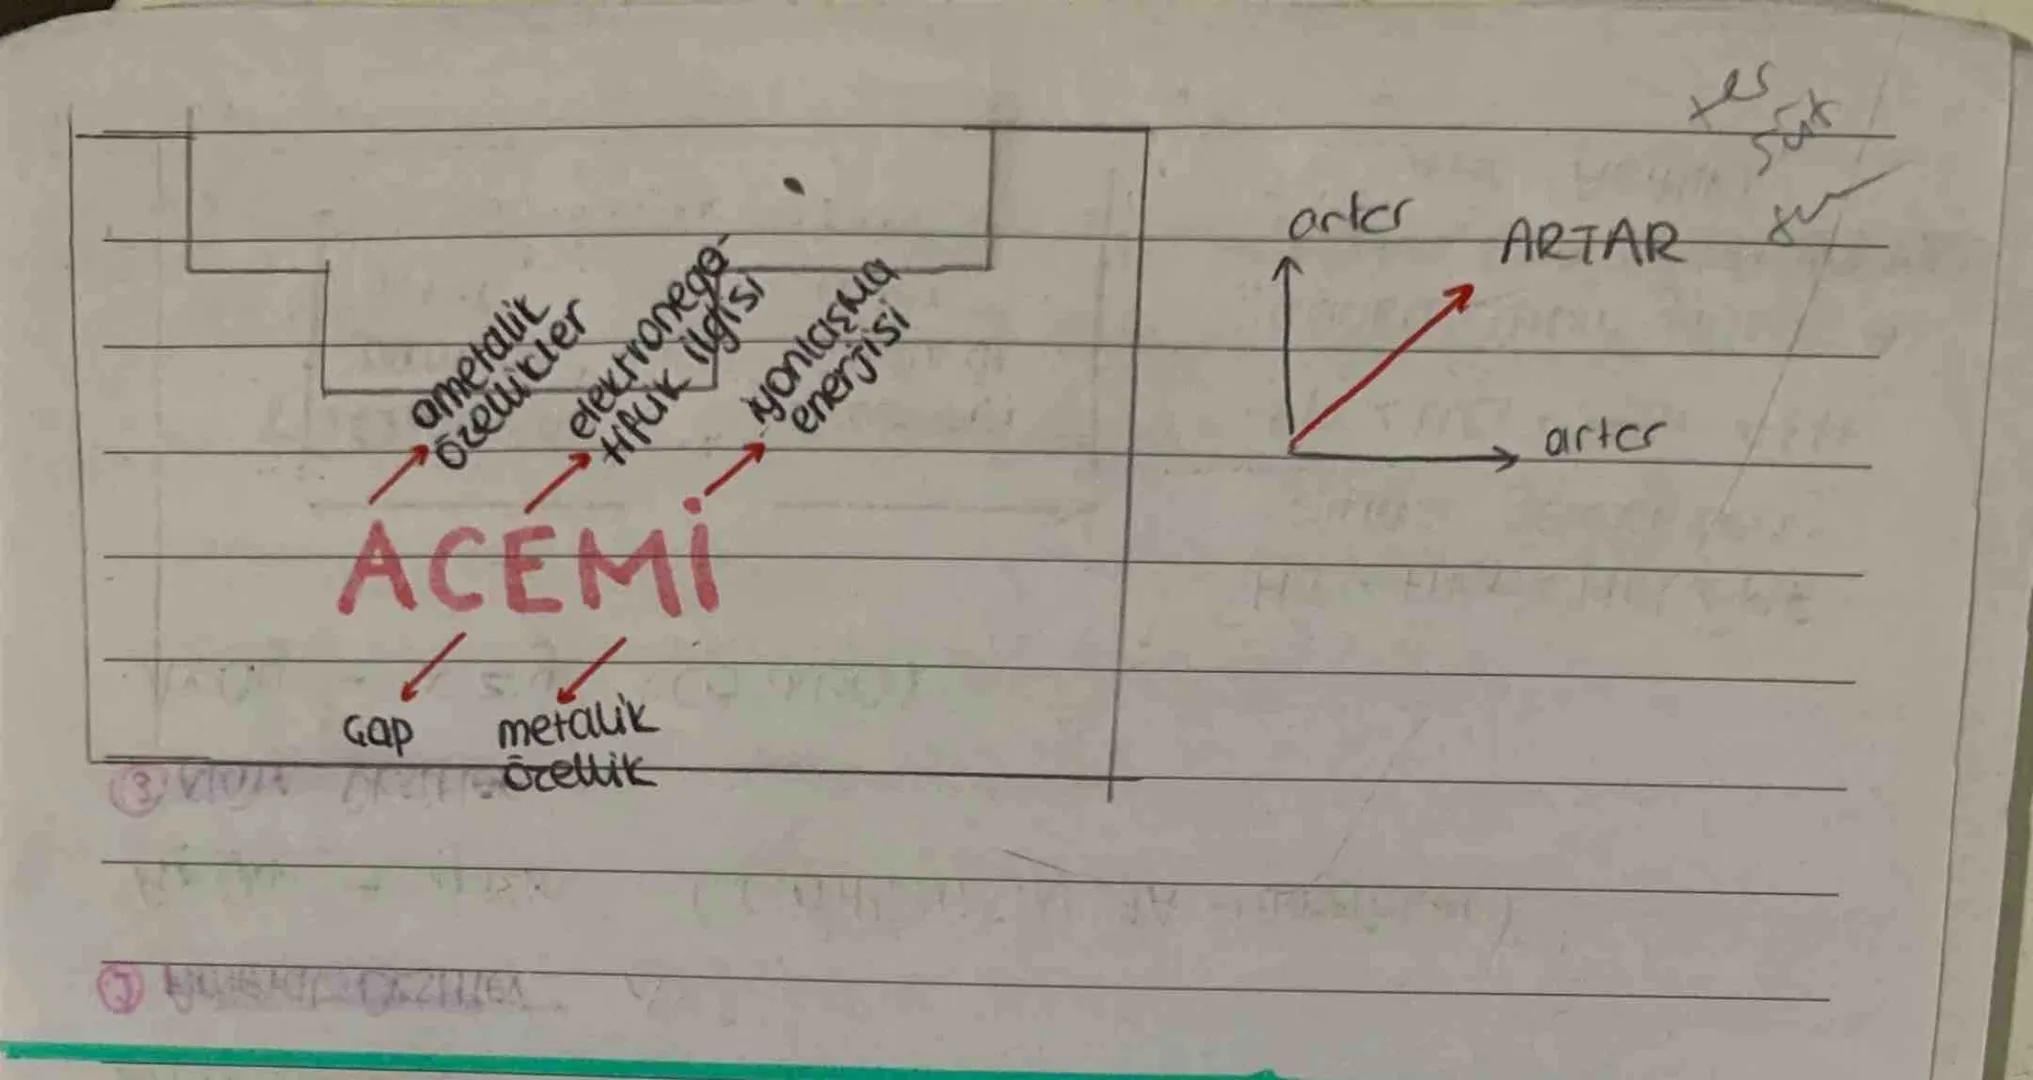 ametalik
özellikler
elektronega-
tiflik ilgisi
iyonlaşma
enerjisi
ACEMİ
Çap
metalik
özellik
artar
ARTAR
artar